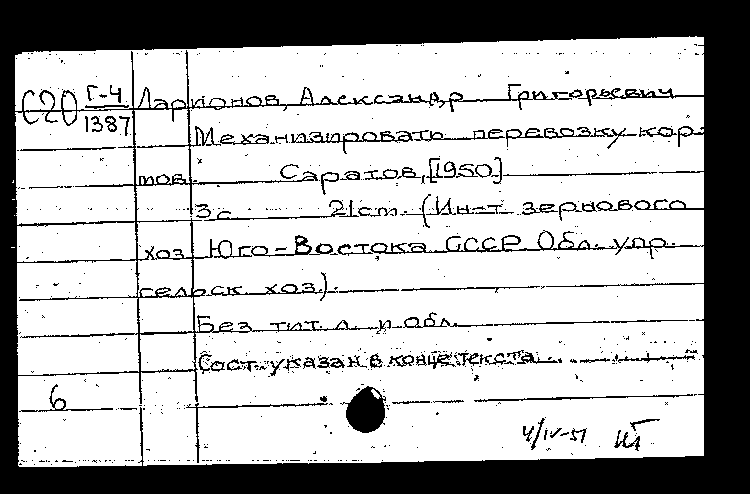 С20 Г-4 Ларионов, Александр Григорьевич
1387 Механизировать перевозку кор-
мов. Саратов, [1950]
3с 21 ст. (Ин-т зернового
хоз Юго-Востока СССР Обл. упр.
сельск хоз).
Без тит. л. и обл.
Сост. указан в конце текста
6
4/IV-51